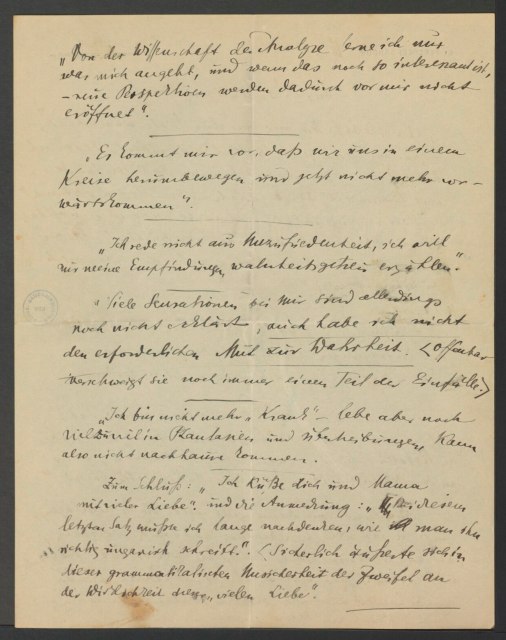 „Von der Wissenschaft der Analyse lerne ich nur,
was mich angeht, und wenn das noch so interessant ist,
– neue Perspektiven werden dadurch vor mir nicht
eröffnet“.
„Es kommt mir vor, daß wir uns in einem
Kreise herumbewegen und jetzt nicht mehr vor-
wärtskommen“.
„Ich rede nicht aus Unzufriedenheit, ich will
nur meine Empfindungen wahrheitsgetreu erzählen.“
„Viele Sensationen bei mir sind allerdings
noch nicht erklärt, auch habe ich nicht
den erforderlichen Mut zur Wahrheit. (Offenbar
verschweigt sie noch immer einen Teil der Einfälle.)
„Ich bin nicht mehr „krank“ – lebe aber noch
viel zu viel in Phantasien und Übertreibungen, kann
also nicht nachhause kommen.
Zum Schluß: „Ich küße dich und Mama
mit vieler Liebe“. und die Anmerkung: „Bei diesem
letzten Satz mußte ich lange nachdenken, wie man ihn
richtig ungarisch schreibt.“. (Sicherlich äußerte sich in
dieser grammatikalischen Unsicherheit der Zweifel an
der Wirklichkeit dieser „vielen Liebe“.